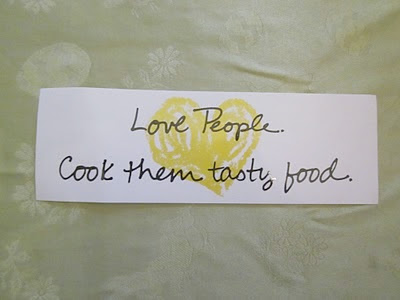 Love People.
Cook them tasty food.